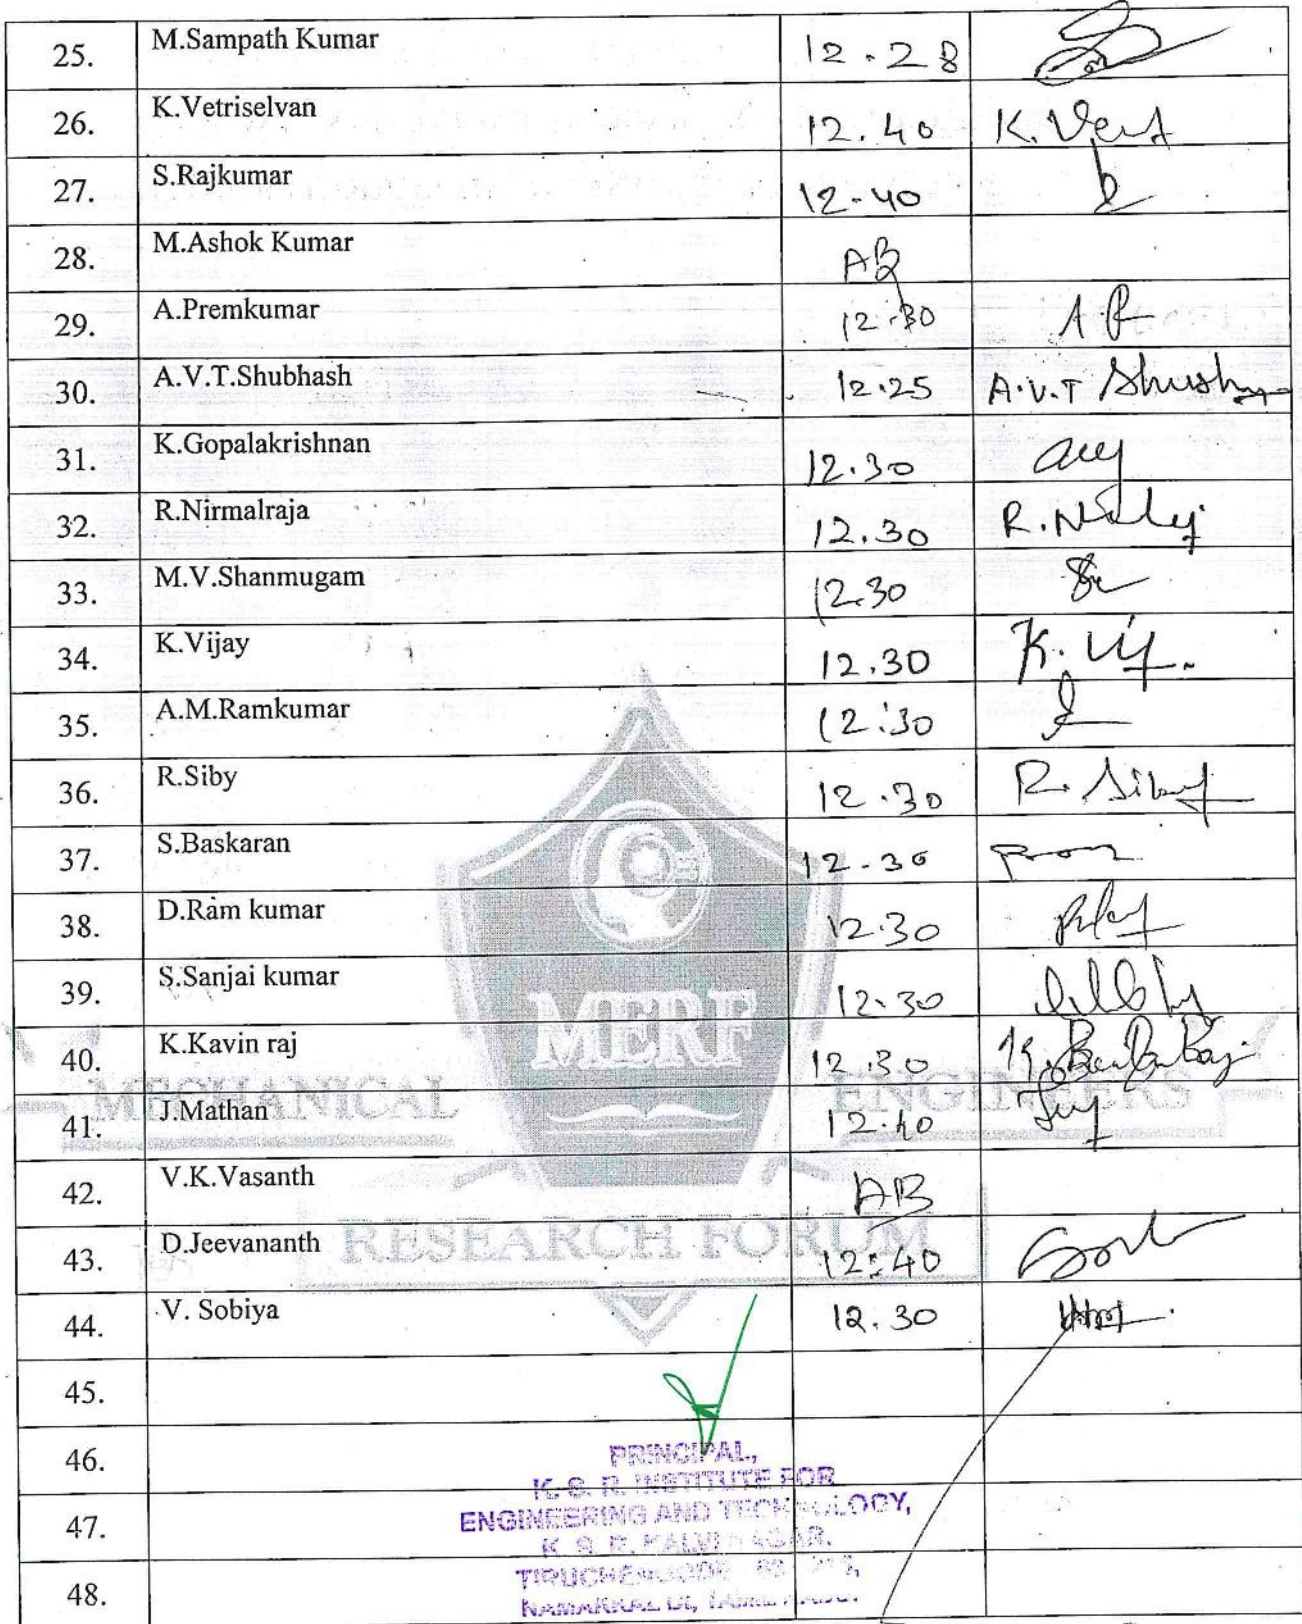 25. M.Sampath Kumar 12.28
26. K.Vetriselvan 12.40 K.
27. S.Rajkumar 12-40
28. M.Ashok Kumar AB
29. A.Premkumar 12.30
30. A.V.T.Shubhash 12.25 A.V.T
31. K.Gopalakrishnan 12.30
32. R.Nirmalraja 12.30 R.
33. M.V.Shanmugam 12.30
34. K.Vijay 12.30 K.
35. A.M.Ramkumar 12.30
36. R.Siby 12.30 R. Siby
37. S.Baskaran 12-30
38. D.Ram kumar 12.30
39. S.Sanjai kumar 12.30
MERF
40. K.Kavin raj 12.30
MECHANICAL ENGINEERS
41. J.Mathan 12.40
42. V.K.Vasanth AB
RESEARCH FORUM
43. D.Jeevananth 12:40
44. V. Sobiya 12.30
45.
46.
PRINCIPAL,
K. S. R. INSTITUTE FOR
47.
ENGINEERING AND TECHNOLOGY,
K. S. R. KALVI NAGAR,
48.
TIRUCHENGODE
NAMAKKAL Dt, TAMIL NADU.